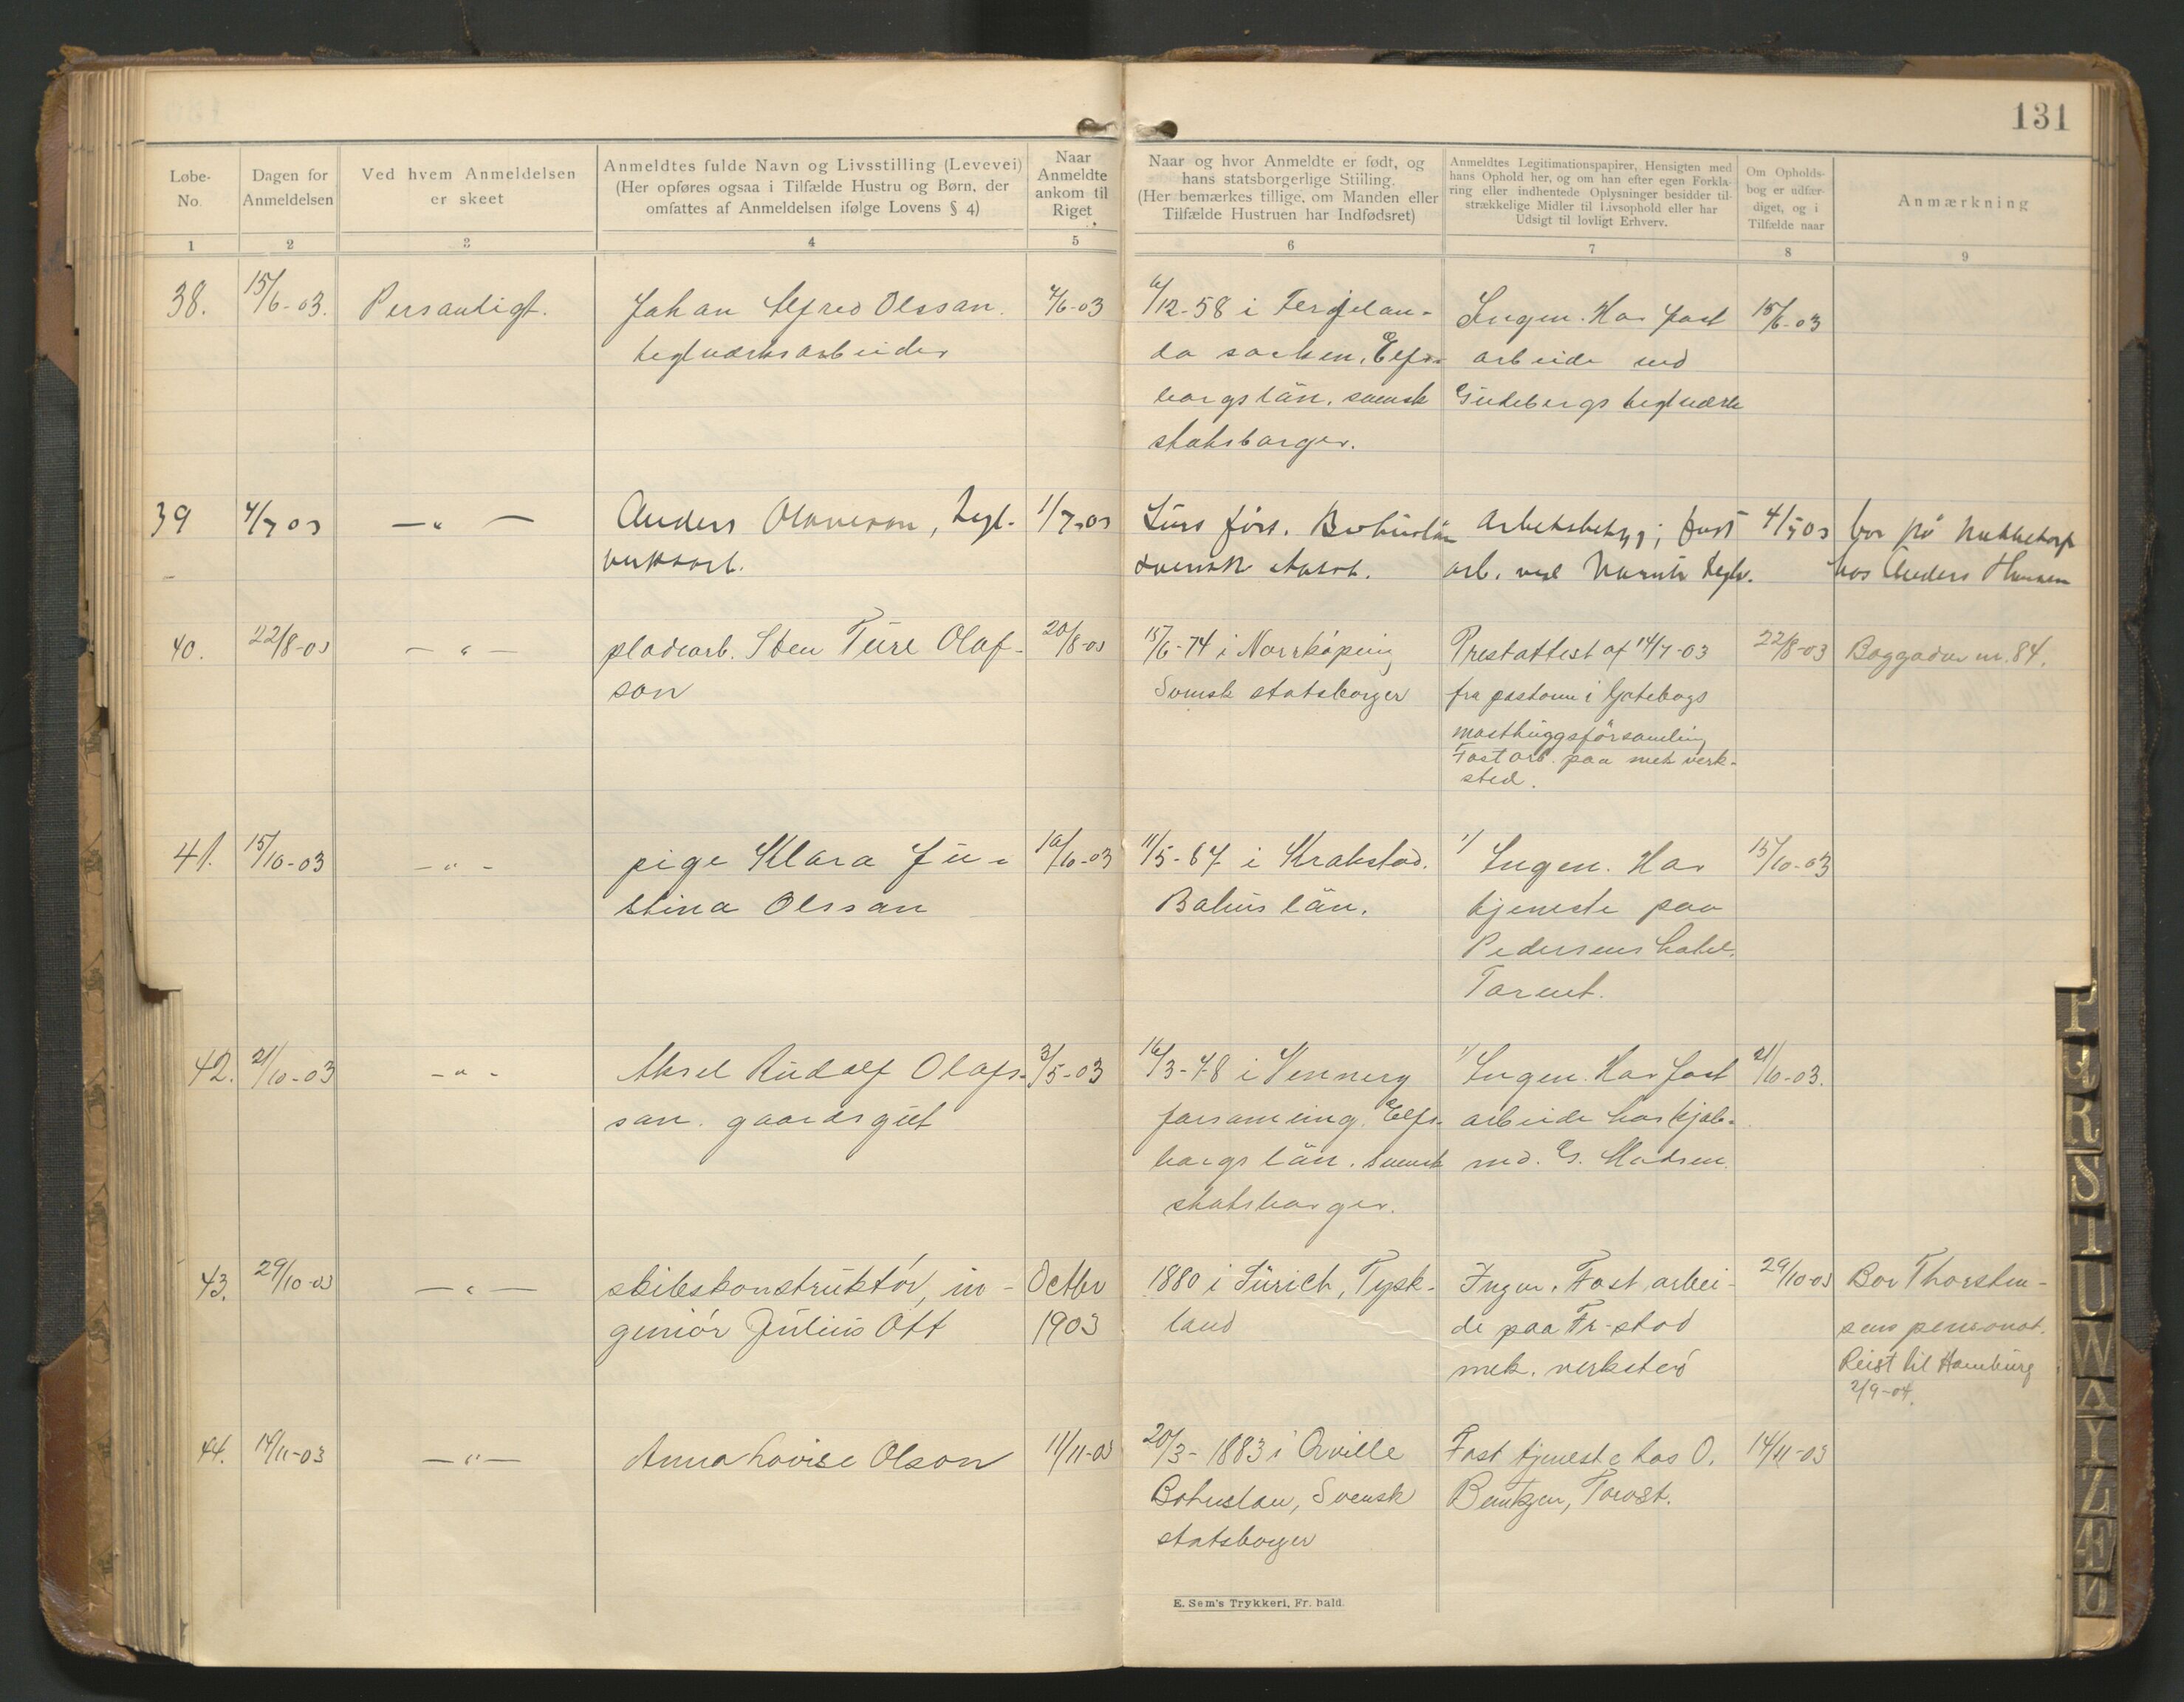 131
Løbe-No.
Dagen for Anmeldelsen
Ved hvem Anmeldelsen er skeet
Anmeldtes fulde Navn og Livsstilling (Levevei)
(Her opføres ogsaa i Tilfælde Hustru og Børn, der
omfattes af Anmeldelsen ifølge Lovens § 4)
Naar Anmeldte ankom til Riget
Naar og hvor Anmeldte er født, og
hans statsborgerlige Stiiling.
(Her bemærkes tillige, om Manden eller
Tilfælde Hustruen har Indfødsret)
Anmeldtes Legitimationspapirer, Hensigten med
hans Ophold her, og om han efter egen Forkla-
ring eller indhentede Oplysninger besidder til-
strækkelige Midler til Livsophold eller har
Udsigt til lovligt Erhverv.
Om Opholds-
bog er udfær-
diget, og i
Tilfælde naar
Anmærkning
1 2 3 4 5 6 7 8 9
38. 15/6-03. Personligt. Johan Alfred Olsson. 4/6-03 6/12-58 i Ingen. Har fast 15/6-03
teglværksarbeider da socken, Elfs- arbeide ved
borgs län. svensk Gudebergs teglværk
statsborger.
39 4/7 03 — " — Anders , tegl- 1/7-03 Lurs förs. Bohuslän fast 4/7 03 bor på
verksarb. svensk statsb. arb. ved teglv. hos Anders Hansen
40. 22/8-03 — " — pladearb. Sten Ture Olaf- 20/8-03 15/6-74 i Norrköping Prestattest af 14/7-03 22/8-03 nr. 84.
son Svensk statsborger fra pastorn i Gøtebogs
masthuggsförsamling
Fast arb. paa mek verk-
sted.
41. 15/10-03 - " - pige Klara Ju- 10/10-03 11/5-67 i Krakstad. 1/ Ingen. Har 15/10-03
stina Olsson Bahus län. tjeneste paa
Pedersens hotel.
Torvet.
42. 21/10-03 - " - Aksel Rudolf Olafs- 3/5-03 16/3-78 i Vennerg 1/ Ingen. Har fast 21/10-03.
son. gaardsgut forsamling, Elfs- arbeide hos kjøb-
borgs län. Svensk md. G. Madsen.
statsborger.
43. 29/10-03 — " — skibskonstruktör, in- Octbr 1880 i Zürich, Tysk- Ingen. Fast arbei- 29/10-03 Bor Thorsten-
geniör Julius Ott 1903 land de paa Fr-stad sens pensonat.
mek. verksted Reist til Hamburg
2/9-04.
44. 14/11-03 — " — Anna Lovise Olson 11/11-03 20/3-1883 i Qville Fast tjeneste hos O. 14/11-03
Bohuslan, Svensk Bentzen, Torvet.
statsborger
E. Sem's Trykkeri, Fr. hald.
P
Q
R
S
T
U
W
X
Y
Z
Æ
Ø